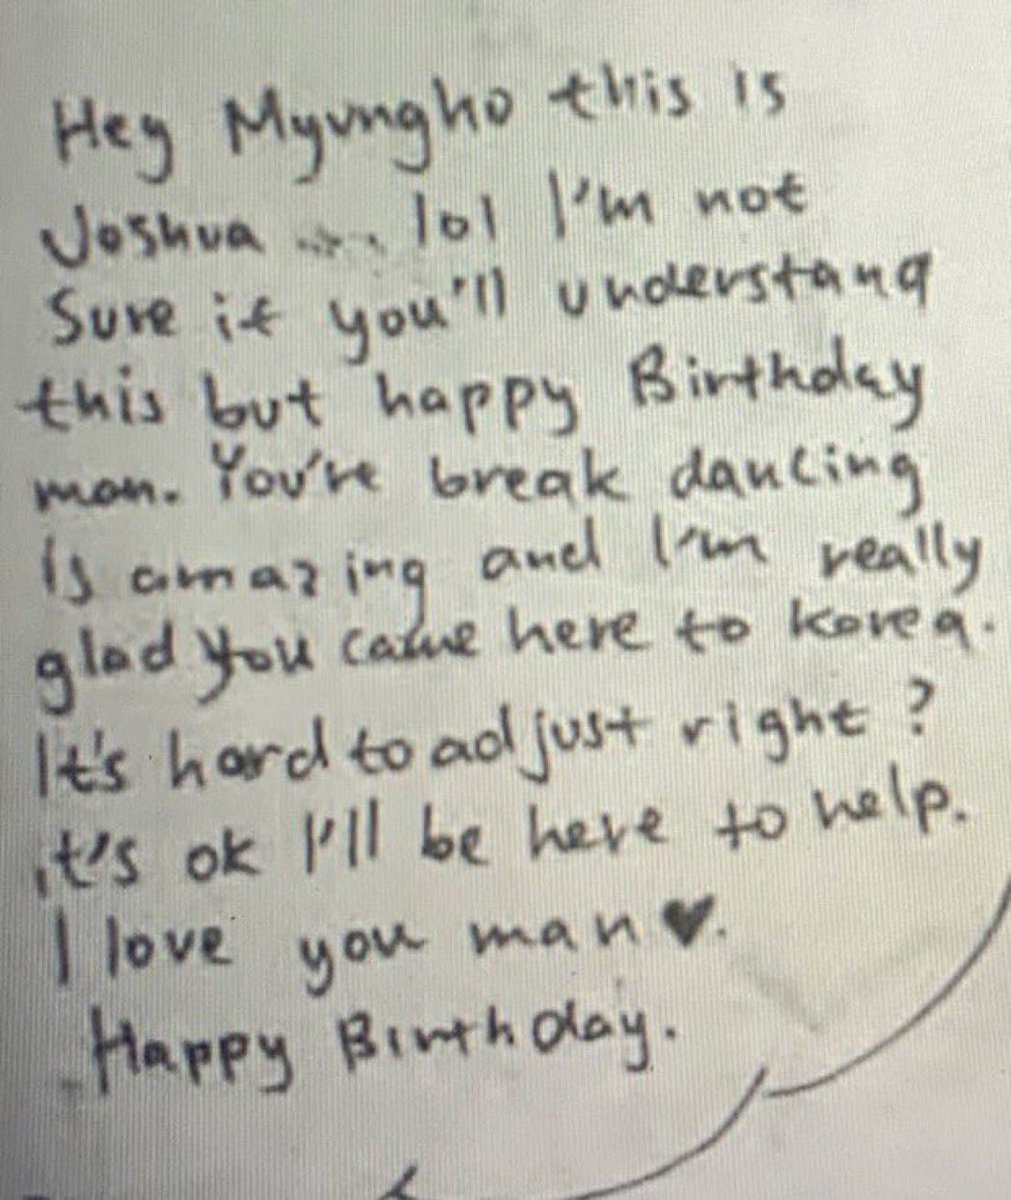 Hey Myungho this is
Joshua .... lol I'm not
Sure if you'll understand
this but happy Birthday
man. You're break dancing
Is amazing and I'm really
glad you came here to Korea.
It's hard to adjust right ?
it's ok I'll be here to help.
I love you man ♥.
Happy Birthday.